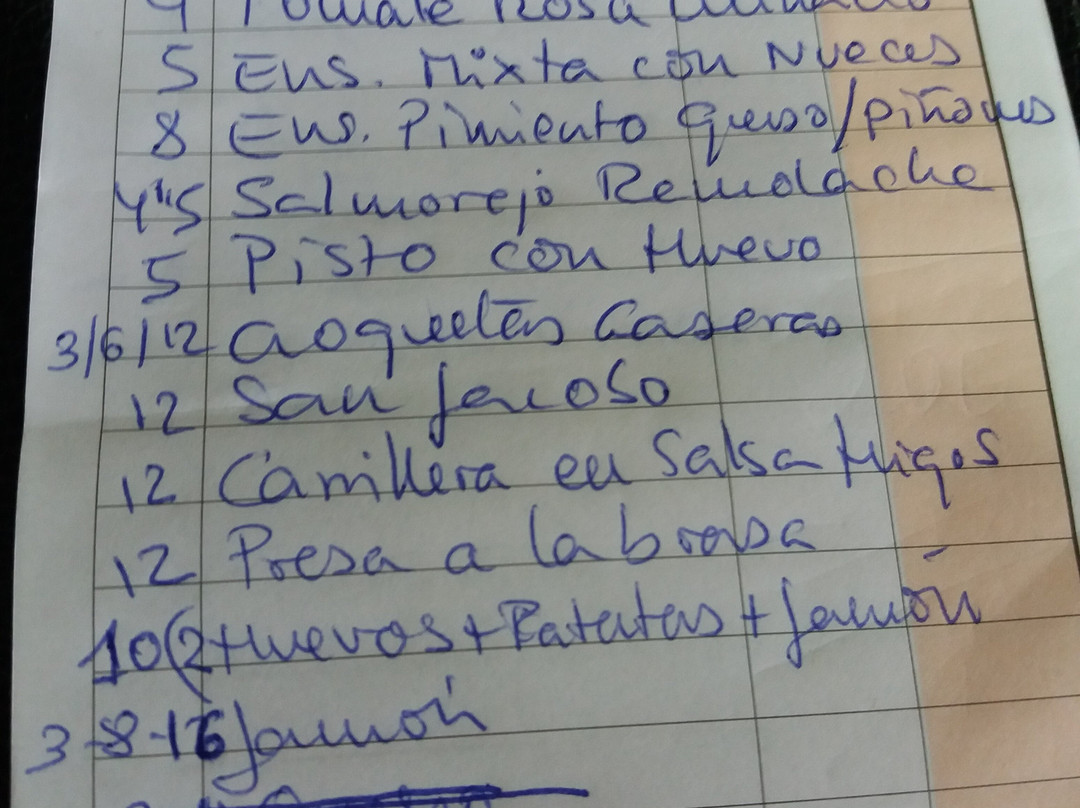 4 Tomate Rosa
5 Ens. Mixta con Nueces
8 Ens. Pimiento Queso/piñones
4'5 Salmorejo Remolacha
5 Pisto con Huevo
3/6/12 Croquetas Caseras
12 San Jacobo
12 Carrillera en Salsa Higos
12 Presa a la brasa
10 (2 Huevos + Patatas + Jamón
3-8-16 Jamón